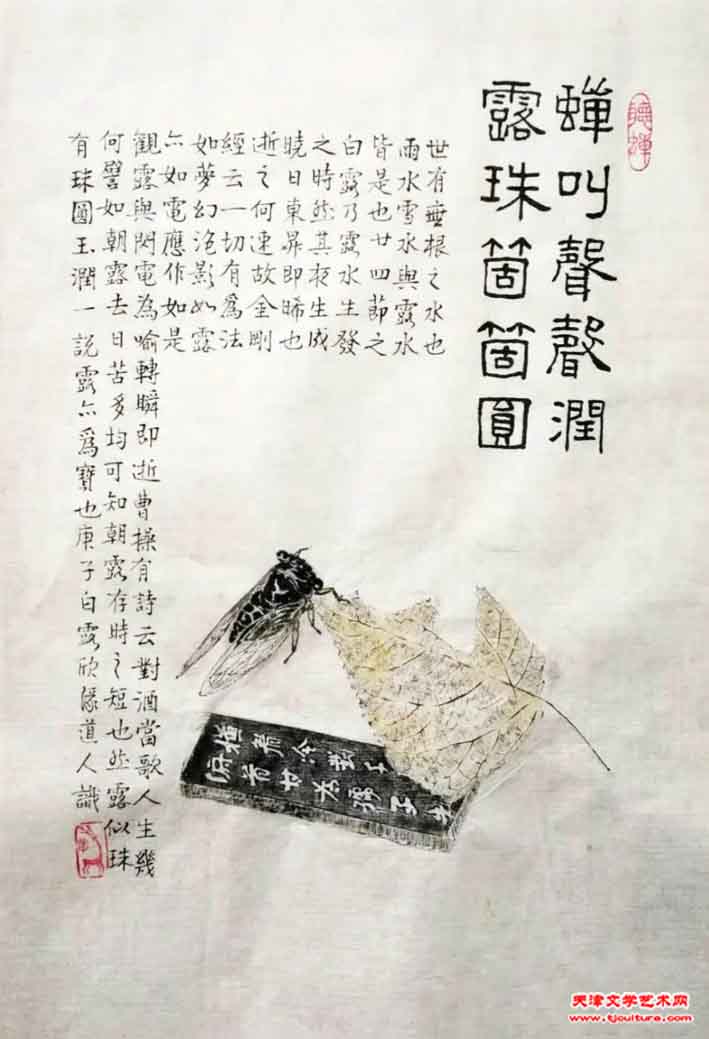 聽蟬
蟬叫聲聲潤
露珠箇箇圓
世有垂根之水也
雨水雪水與露水
皆是也廿四節之
白露乃露水生發
之時然其夜生成
曉日東昇即晞也
逝之何速故金剛
經云一切有爲法
如夢幻泡影如露
亦如電應作如是
觀露與閃電為喻轉瞬即逝曹操有詩云對酒當歌人生幾
何譬如朝露去日苦多均可知朝露存時之短也然露似珠
有珠圓玉潤一說露亦爲寶也庚子白露欣緣道人識
天津文学艺术网
www.tjculture.com